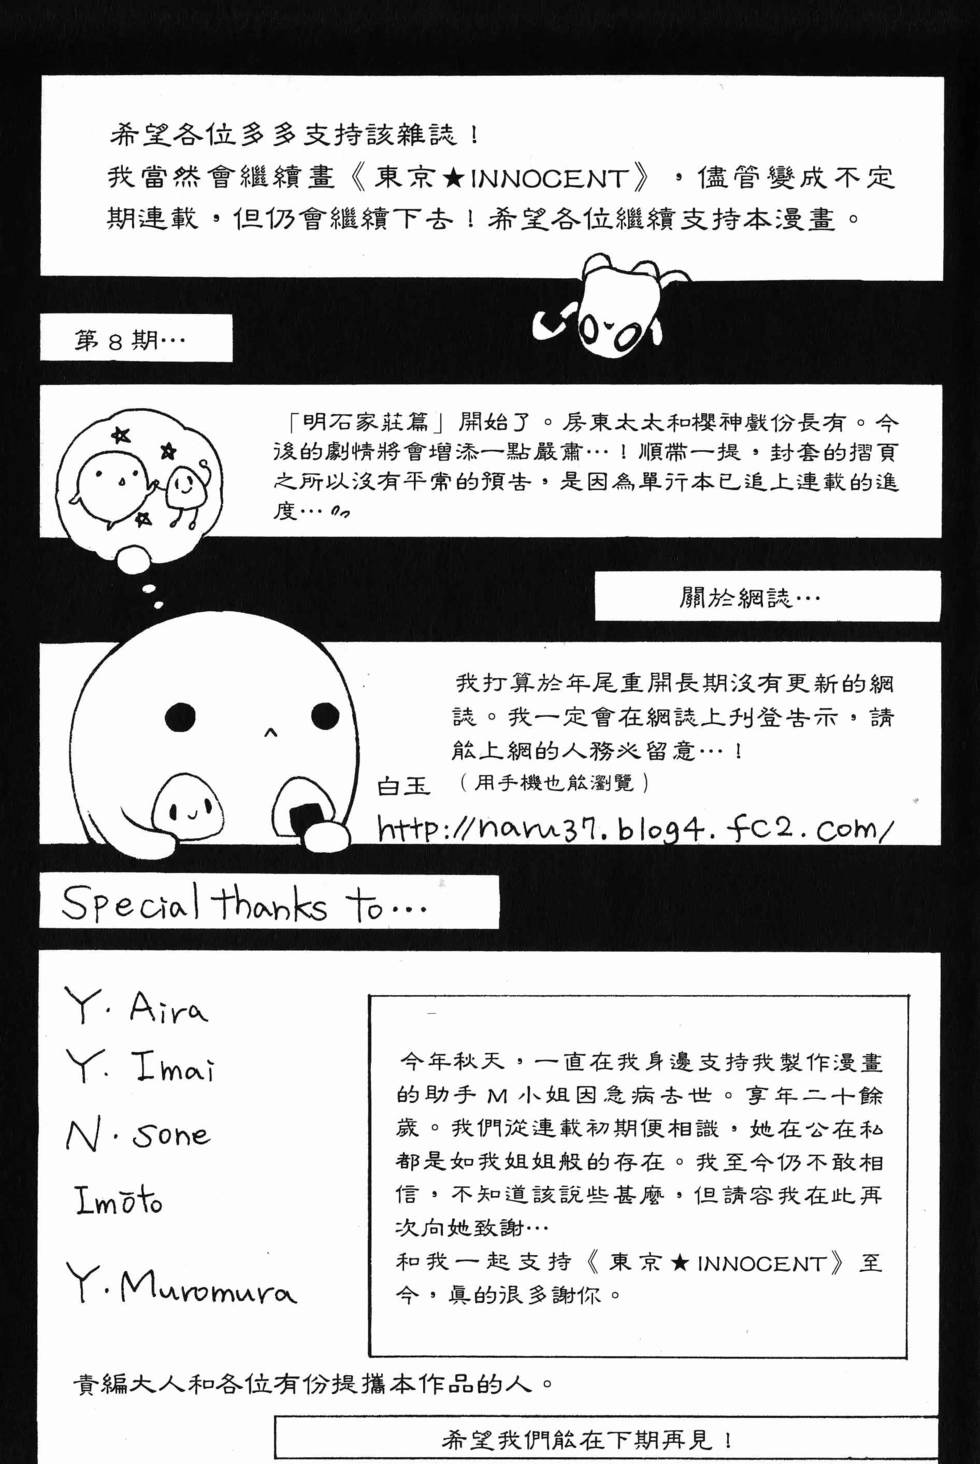 希望各位多多支持該雜誌！
我當然會繼續畫《東京★INNOCENT》，儘管變成不定
期連載，但仍會繼續下去！希望各位繼續支持本漫畫。
第8期…
「明石家莊篇」開始了。房東太太和櫻神戲份長有。今
後的劇情將會增添一點嚴肅…！順帶一提，封套的摺頁
之所以沒有平常的預告，是因為單行本已追上連載的進
度…
關於網誌…
我打算於年尾重開長期沒有更新的網
誌。我一定會在網誌上刊登告示，請
能上網的人務必留意…！
白玉（用手機也能瀏覽）
http://naru37.blog4.fc2.com/
Special thanks to…
Y. Aira
Y. Imai
N. Sone
Imōto
Y. Muromura
今年秋天，一直在我身邊支持我製作漫畫
的助手M小姐因急病去世。享年二十餘
歲。我們從連載初期便相識，她在公在私
都是如我姐姐般的存在。我至今仍不敢相
信，不知道該說些甚麼，但請容我在此再
次向她致謝…
和我一起支持《東京★INNOCENT》至
今，真的很多謝你。
責編大人和各位有份提攜本作品的人。
希望我們能在下期再見！